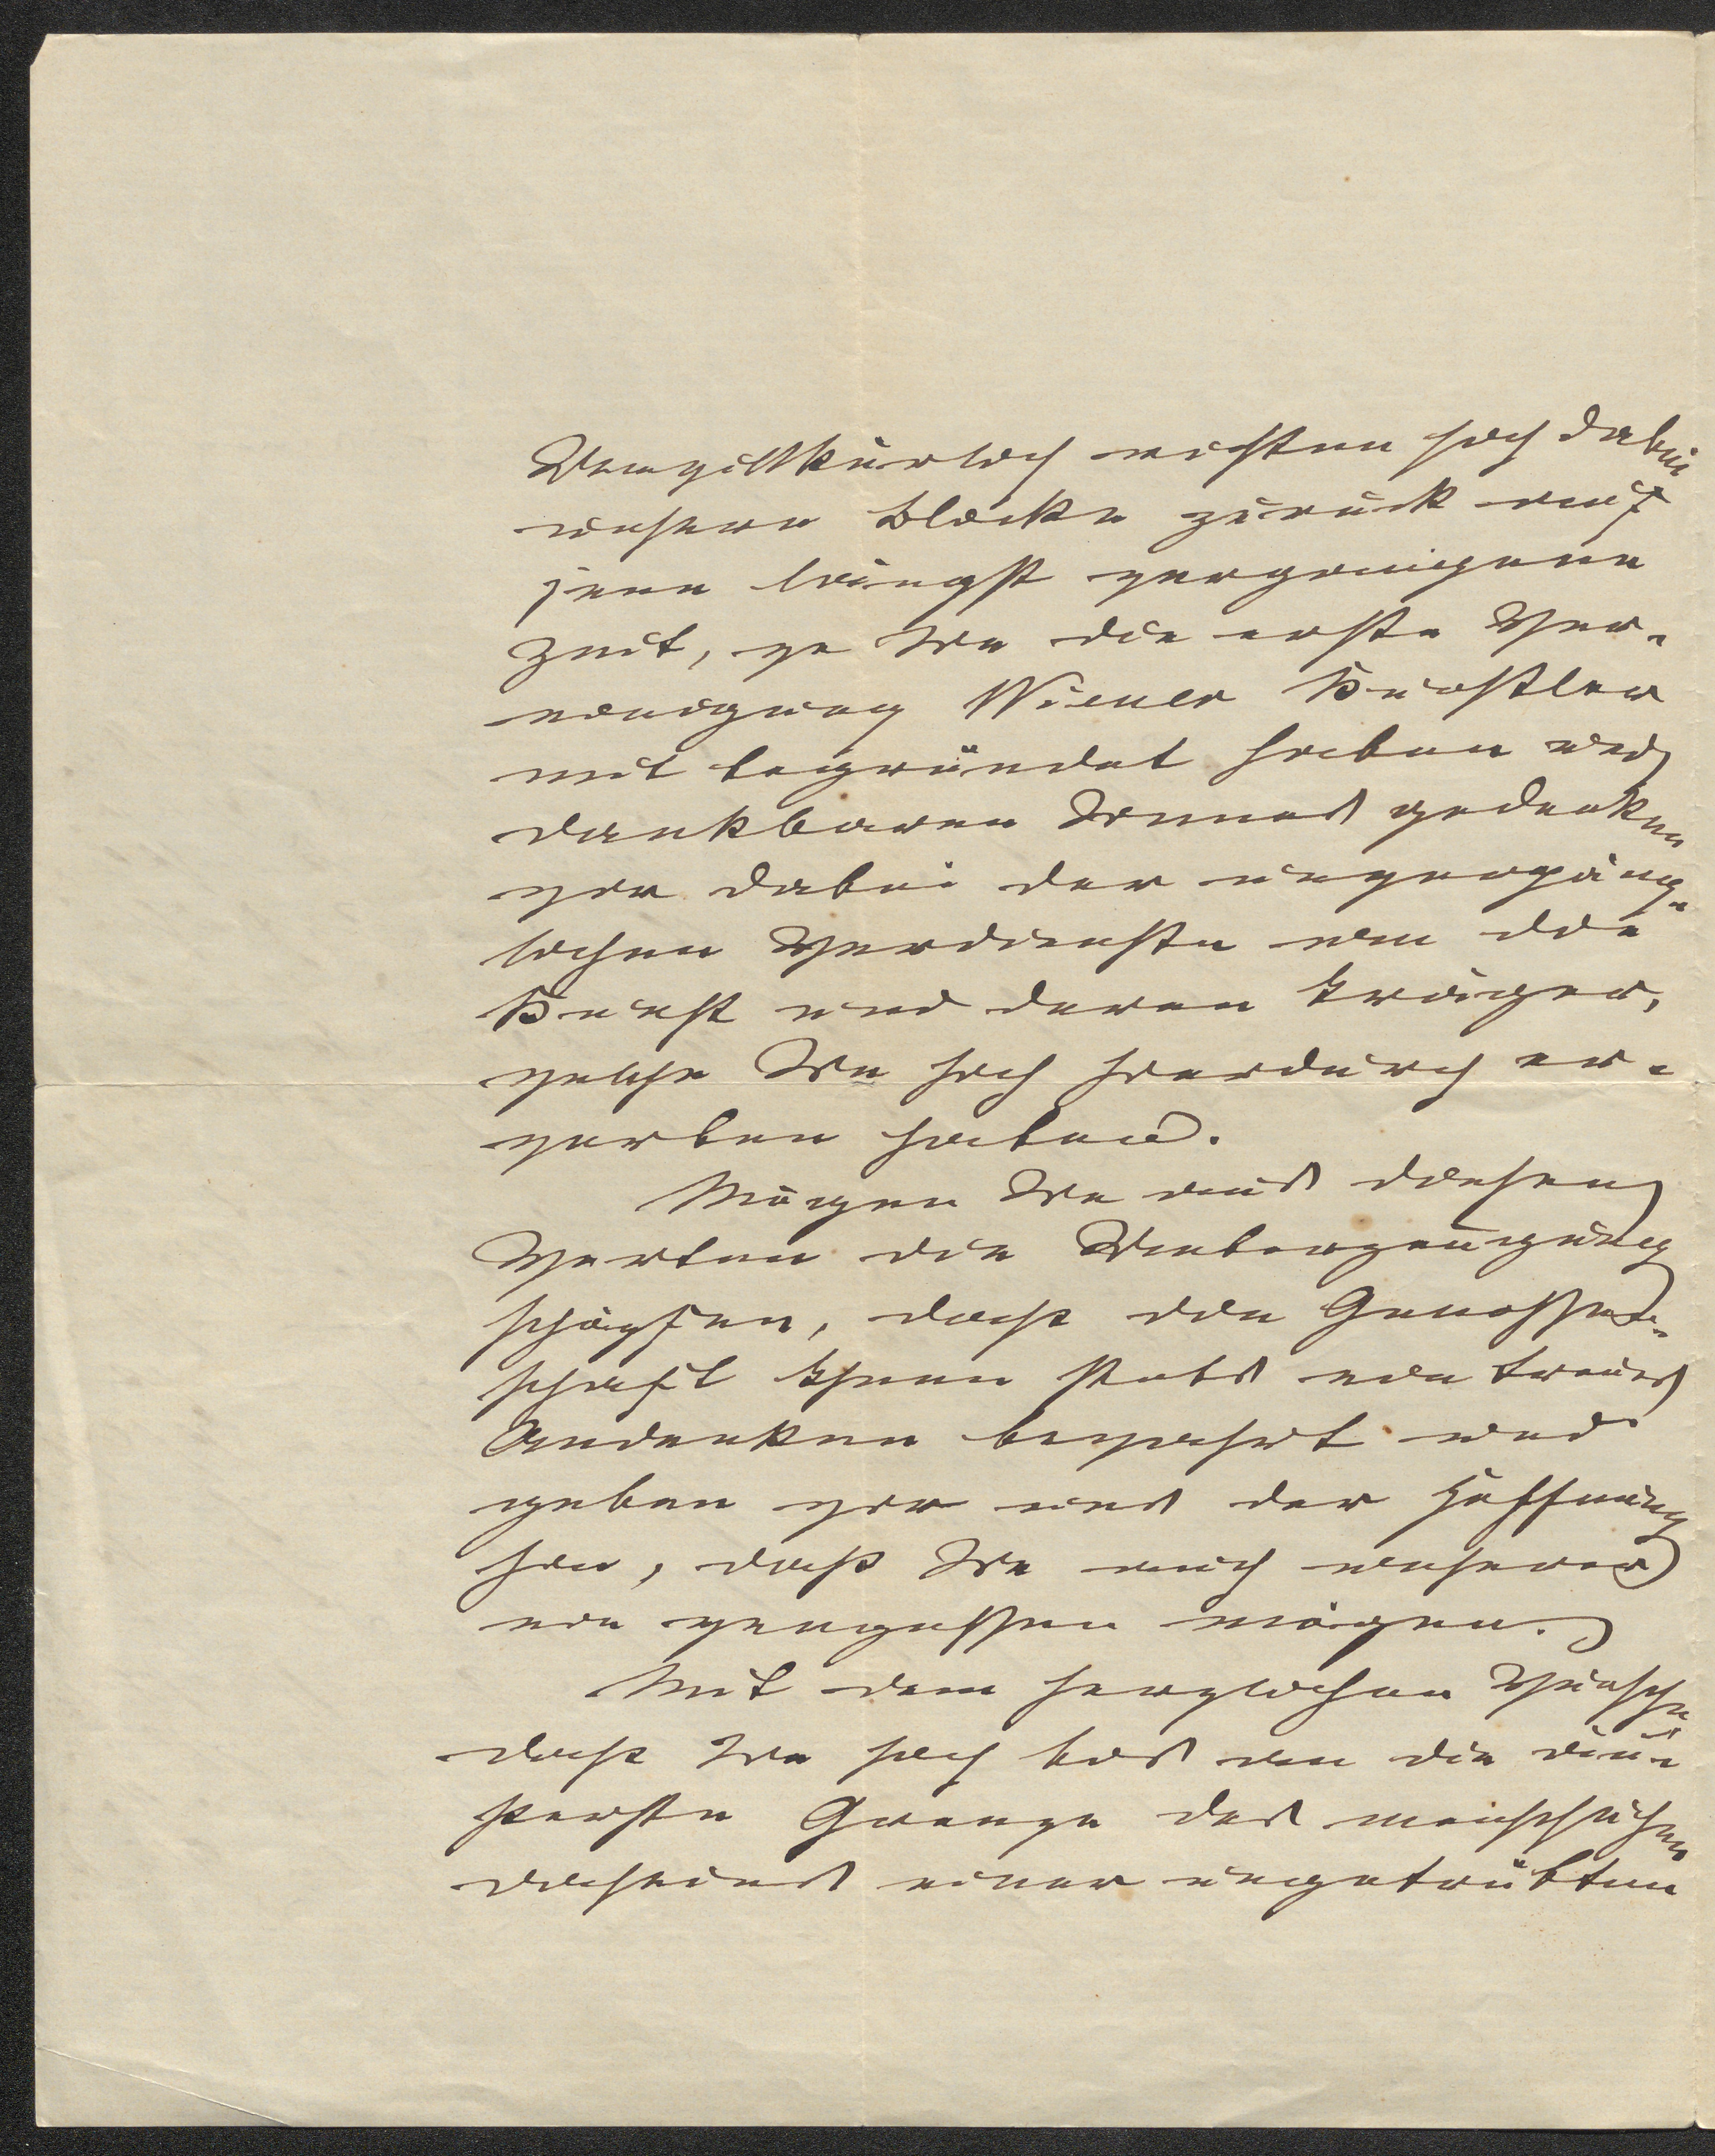 Unwillkürlich richten sich dabei
unsere Blicke zurück auf
jene längst vergangene
Zeit, wo Sie die erste Ver-
einigung Wiener Künstler
mit begründet haben und
dankbaren Sinnes gedenken
wir dabei der unvergäng-
lichen Verdienste um die
Kunst und deren Träger,
welche Sie sich hiedurch er-
worben haben.
Mögen Sie aus diesen
Worten die Ueberzeugung
schöpfen, dass die Genossen-
schaft Ihnen stets ein treues
Andenken bewahrt und
geben wir uns der Hoffnung
hin, dass Sie auch unserer
nie vergessen mögen.
Mit dem herzlichen Wunsche
dass Sie sich bis an die äu-
sserste Grenze des menschlichen
Daseins einer ungetrübten